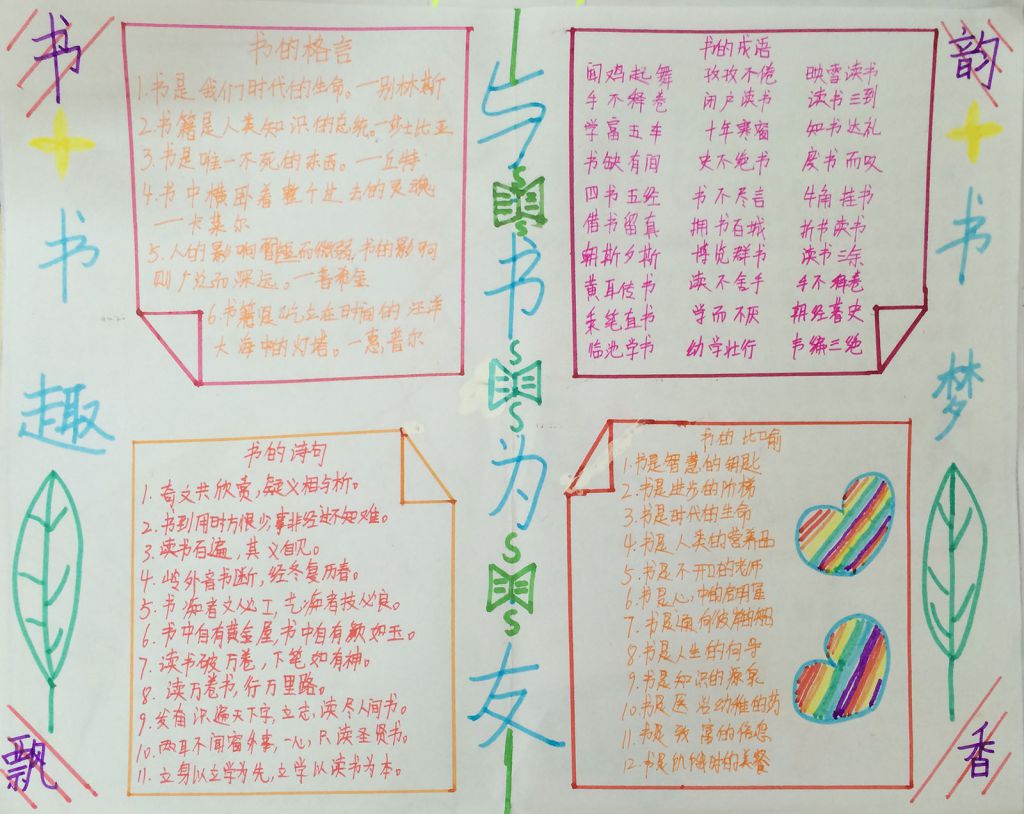 书
韵
飘
香
书
趣
书
梦
与
书
为
友
书的格言
1.书是我们时代的生命。一别林斯
2.书籍是人类知识的总统。一莎士比亚
3.书是唯一不死的东西。一丘特
4.书中横卧着整个过去的灵魂
一卡莱尔
5.人的影响而微弱,书的影响
则广泛而深远。一普希金
6.书籍是屹立在时间的汪洋
大海中的灯塔。一惠普尔
书的成语
闻鸡起舞 孜孜不倦 映雪读书
手不释卷 闭户读书 读书三到
学富五车 十年寒窗 知书达礼
书缺有间 史不绝书 废书而叹
四书五经 书不尽言 牛角挂书
借书留真 拥书百城 折节读书
朝斯夕斯 博览群书 读书三余
黄耳传书 读不舍手 手不释卷
秉笔直书 学而不厌 朝经暮史
临池学书 幼学壮行 韦编三绝
书的诗句
1.奇文共欣赏,疑义相与析。
2.书到用时方恨少事非经过不知难。
3.读书百遍,其义自见。
4.岭外音书断,经冬复历春。
5.书痴者文必工,艺痴者技必良。
6.书中自有黄金屋,书中自有颜如玉。
7.读书破万卷,下笔如有神。
8.读万卷书,行万里路。
9.发奋识遍天下字,立志,读尽人间书。
10.两耳不闻窗外事,一心,只读圣贤书。
11.立身以立学为先,立学以读书为本。
书的比喻
1.书是智慧的钥匙
2.书是进步的阶梯
3.书是时代的生命
4.书是人类的营养品
5.书是不开口的老师
6.书是心,中的启明星
7.书是驶向彼岸的船
8.书是人生的向导
9.书是知识的源泉
10.书是医治幼稚的药
11.书是致富的信息
12.书是饥饿时的美餐